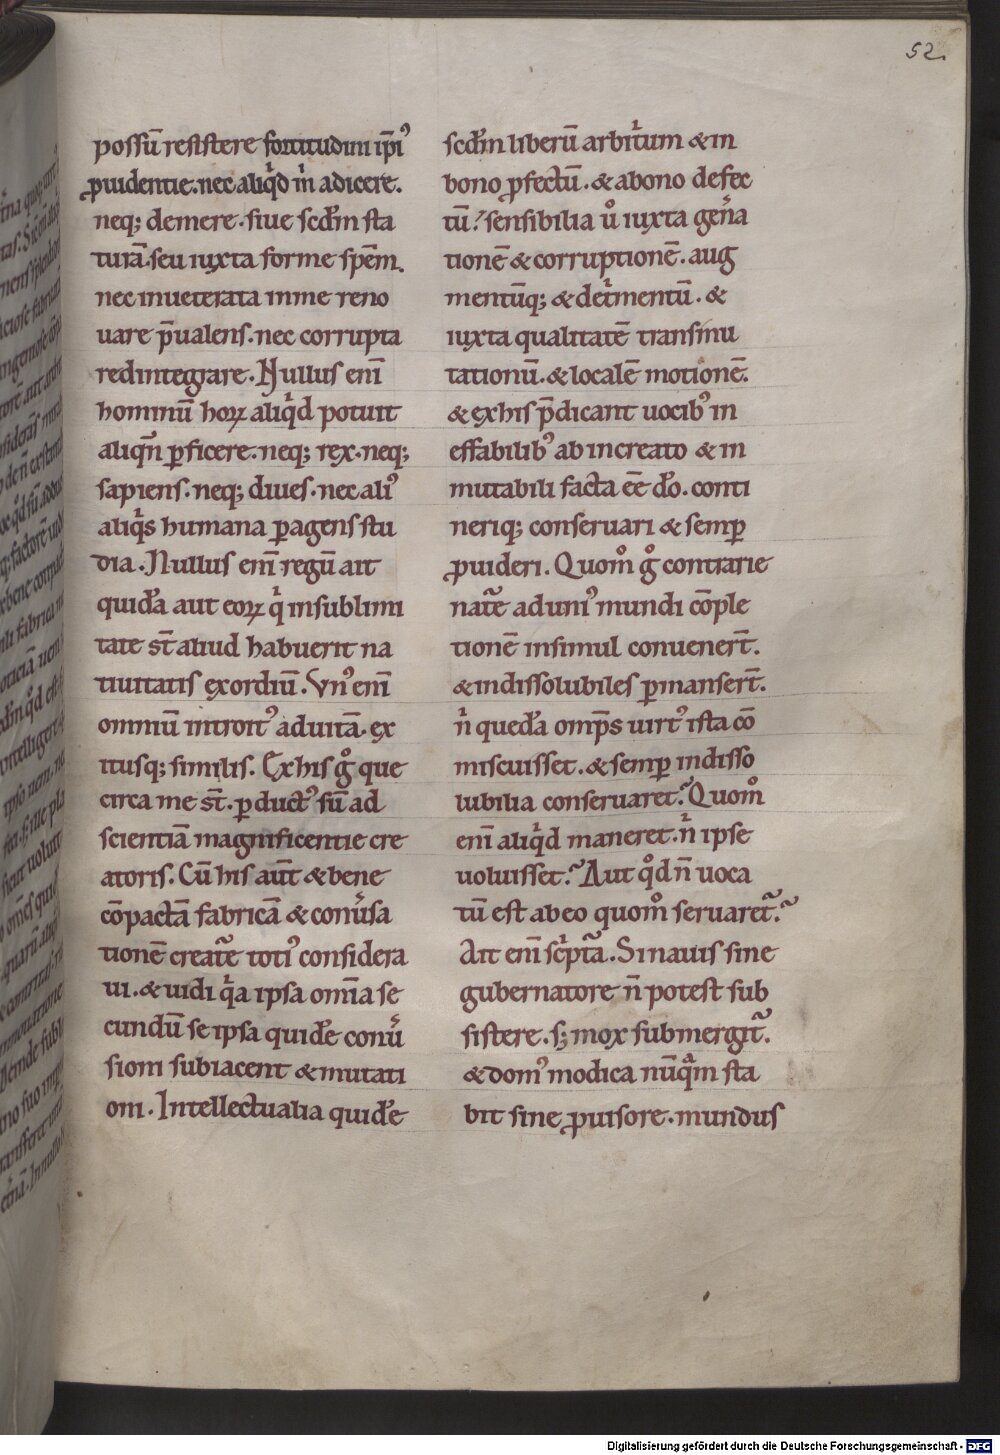 52.
possū resistere fortitudini ip̄iꝰ
ꝓuidentie. nec aliqͥd m̄ adicere.
neq; demere. siue scd̄m sta
turā. seu iuxta forme spēm.
nec inueterata in me reno
uare p̄ualens. nec corrupta
redintegrare. Nullus eni̅
hominū hoꝝ aliqͥd potuit
aliqn̄ ꝑficere. neq; rex. neq;
sapiens. neq; diues. nec aliꝰ
aliqͥs humana ꝑagens stu
dia. Nullus eni̅ regū ait
quidā aut eoꝝ qͥ in sublimi
tate st̄ aliud habuerit na
tiuitatis ęxordiū. Vnꝰ eni̅
omniū introitꝰ ad uitā. ex
itusq; similis. Ex his gͦ que
circa me st̄. ꝑductꝰ sū ad
scientiā magnificentie cre
atoris. Cū his aūt & bene
cōpactā fabricā & conu͛sa
tionē creat̄e totiꝰ considera
ui. & uidi qͥa ipsa om̄ia se
cundū se ipsa quidē conu͛
sioni subiacent & mutati
oni. Intellectualia quidē
scd̄m liberū arbitͥum & in
bono ꝓfectū. & a bono defec
tū? sensibilia uͦ iuxta gen̄a
tionē & corruptionē. aug
mentūq; & detͥmentū. &
iuxta qualitatē transmu
tationū. & localē motionē.
& ex his p̄dicant uocibꝰ in
effabilibꝰ ab increato & in
mutabili facta eē do̅. conti
neriq; conseruari & semꝑ
ꝓuideri. Quomͦ gͦ contrarie
nat̄e ad uniꝰ mundi cōple
tionē insimul conuenert̄.
& indissolubiles ꝑmansert̄.
n̄ quedā omp̄s uirtꝰ ista cō
miscuisset. & semꝑ indisso
lubilia conseruaret? Quomͦ
eni̅ aliqͥd maneret. n̄ ipse
uoluisset? Aut qͦd n̄ uoca
tū est ab eo quomͦ seruaret᷑?
Ait eni̅ sc͛pt̄a. Si nauis sine
gubernatore n̄ potest sub
sistere. s; mox submergit᷑.
& domꝰ modica nūqͣm sta
bit sine ꝓuisore. mundus
Digitalisierung gefördert durch die Deutsche Forschungsgemeinschaft - DFG